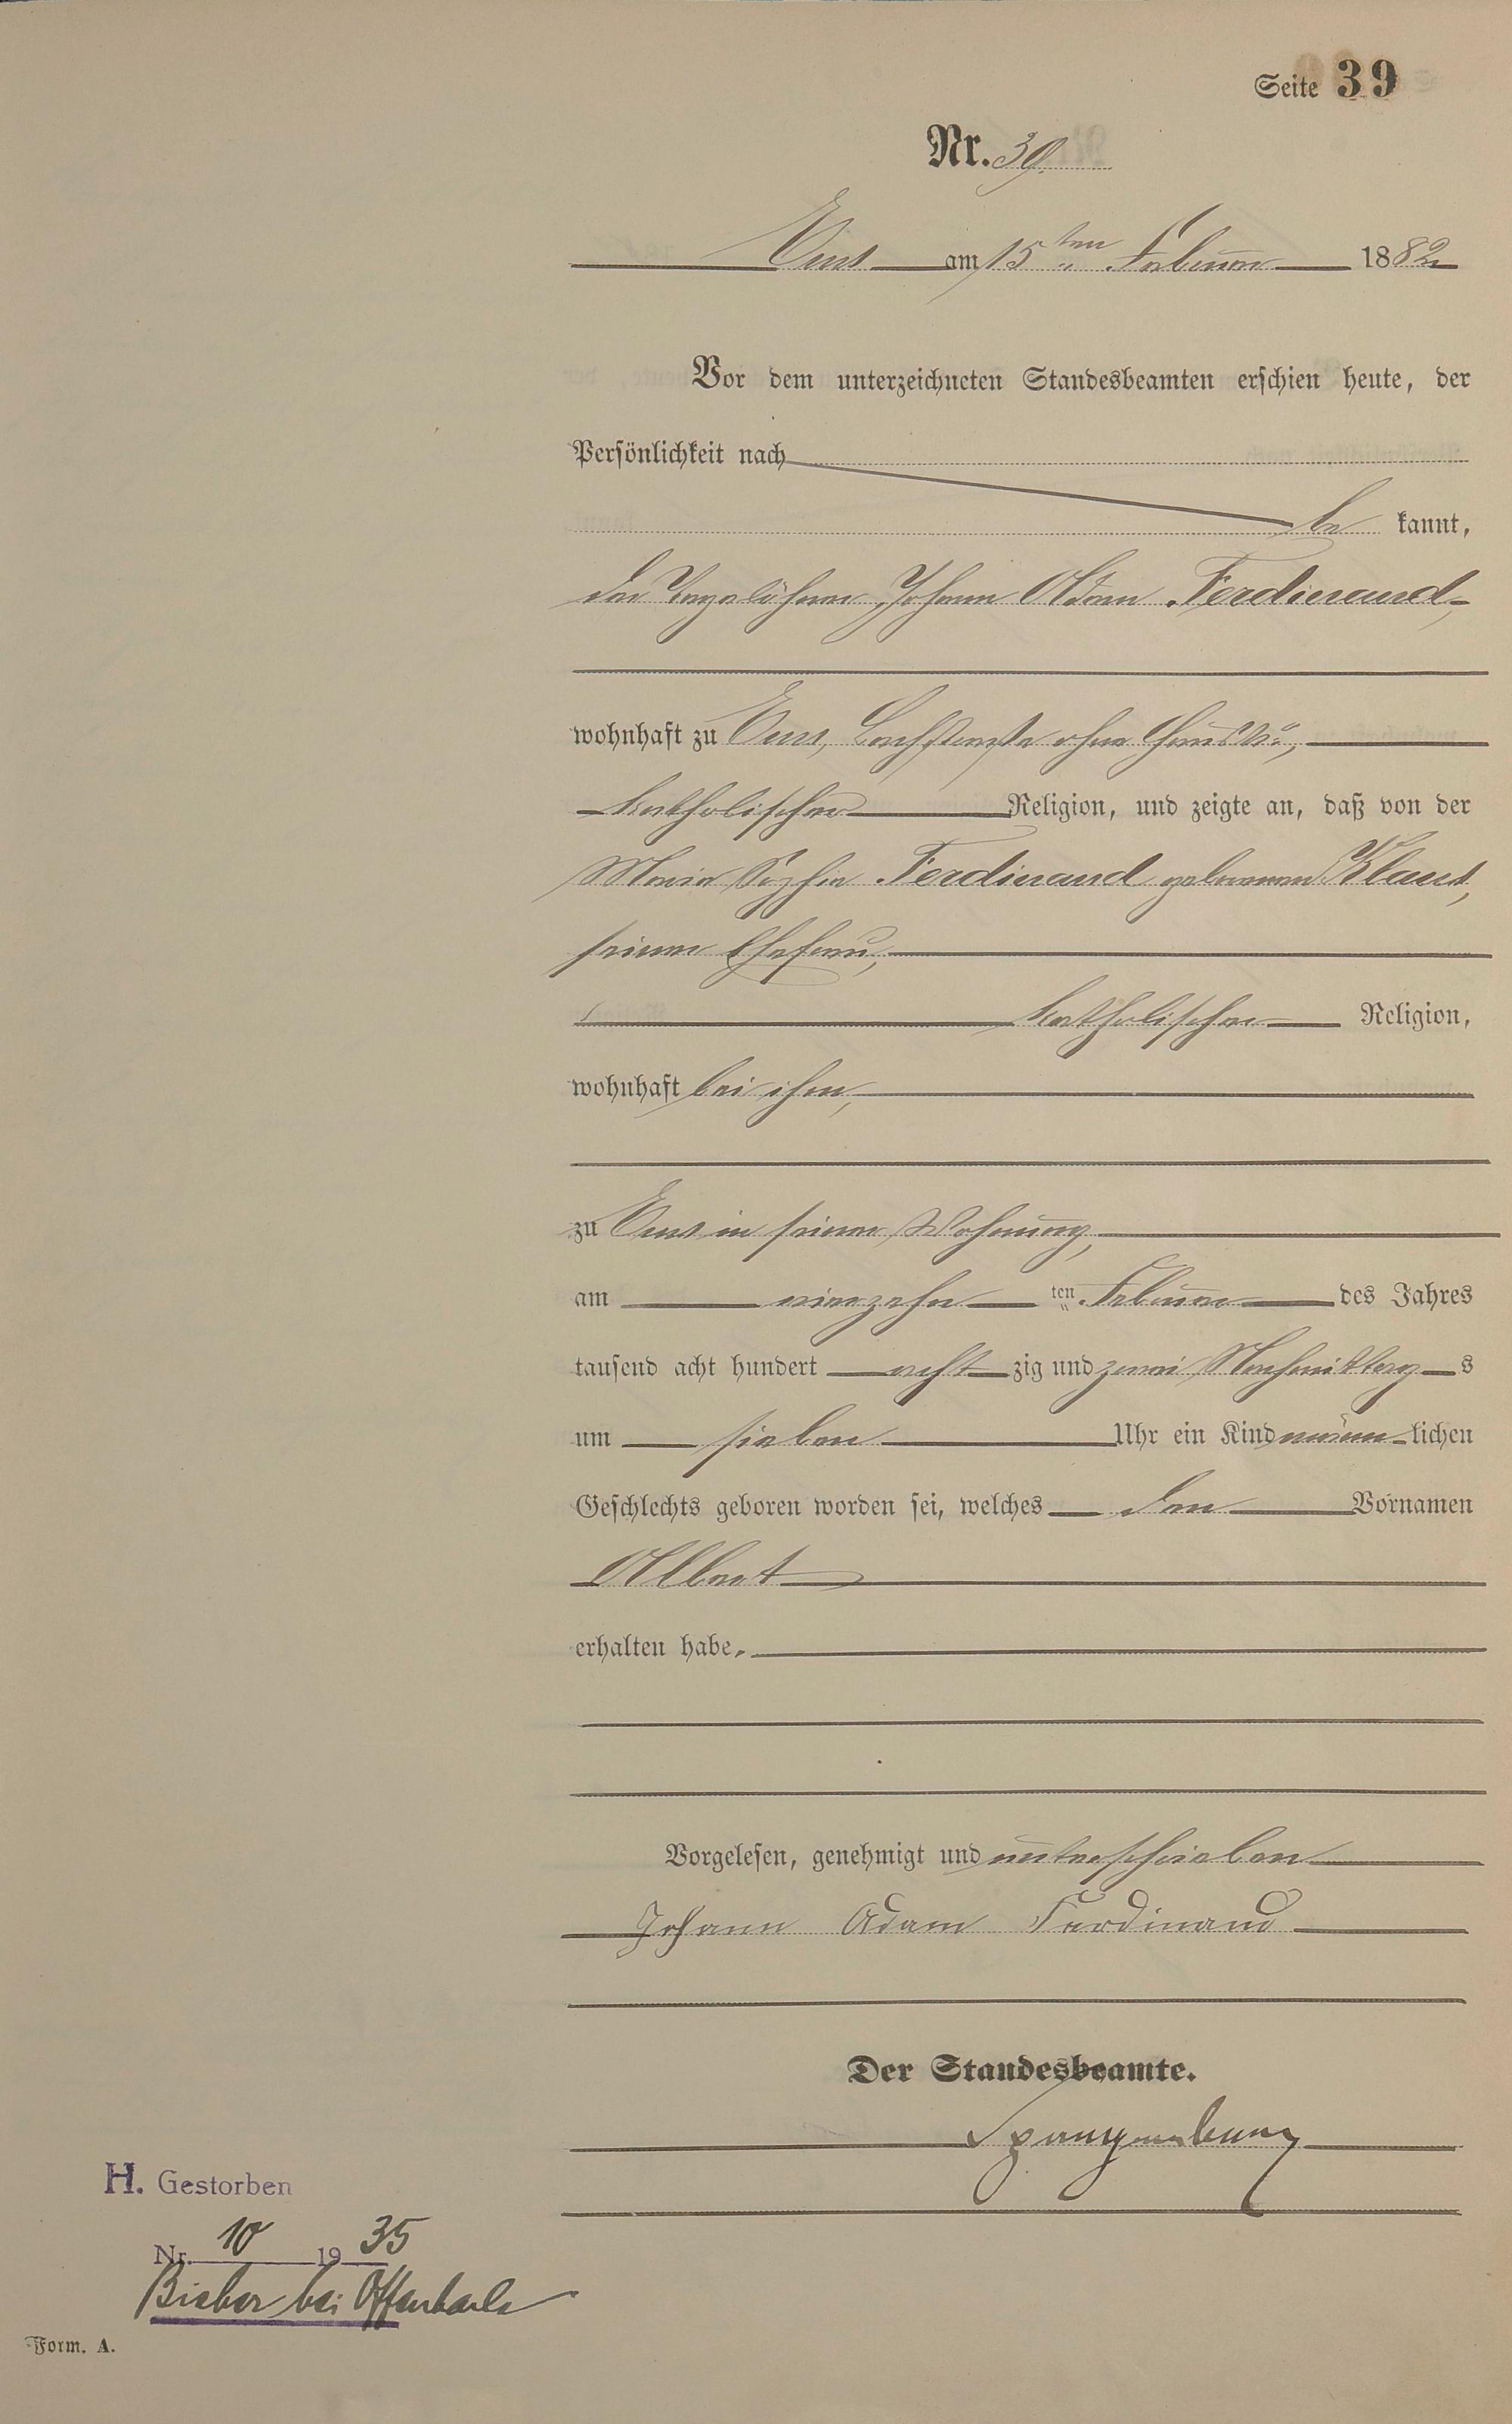 Seite 39
Nr. 39.
Ems am 15ten Februar 1882
Vor dem unterzeichneten Standesbeamten erschien heute, der
Persönlichkeit nach
be kannt,
der Tagelöhner Johann Adam Ferdinand,
wohnhaft zu Ems, Bachstraße ohne Haus No,
katholischer Religion, und zeigte an, daß von der
Maria Sophia Ferdinand geborenen Klaus,
seiner Ehefrau,
katholischer Religion,
wohnhaft bei ihm,
zu Ems in seiner Wohnung,
am vierzehn ten Februar des Jahres
tausend acht hundert acht zig und zwei Nachmittag s
um sieben Uhr ein Kind männ lichen
Geschlechts geboren worden sei, welches den Vornamen
Albert
erhalten habe.
Vorgelesen, genehmigt und unterschrieben
Johann Adam Ferdinand
Der Standesbeamte.
Spangenberg
H. Gestorben
Nr. 10 1935
Bieber bei Offenbach
Form. A.